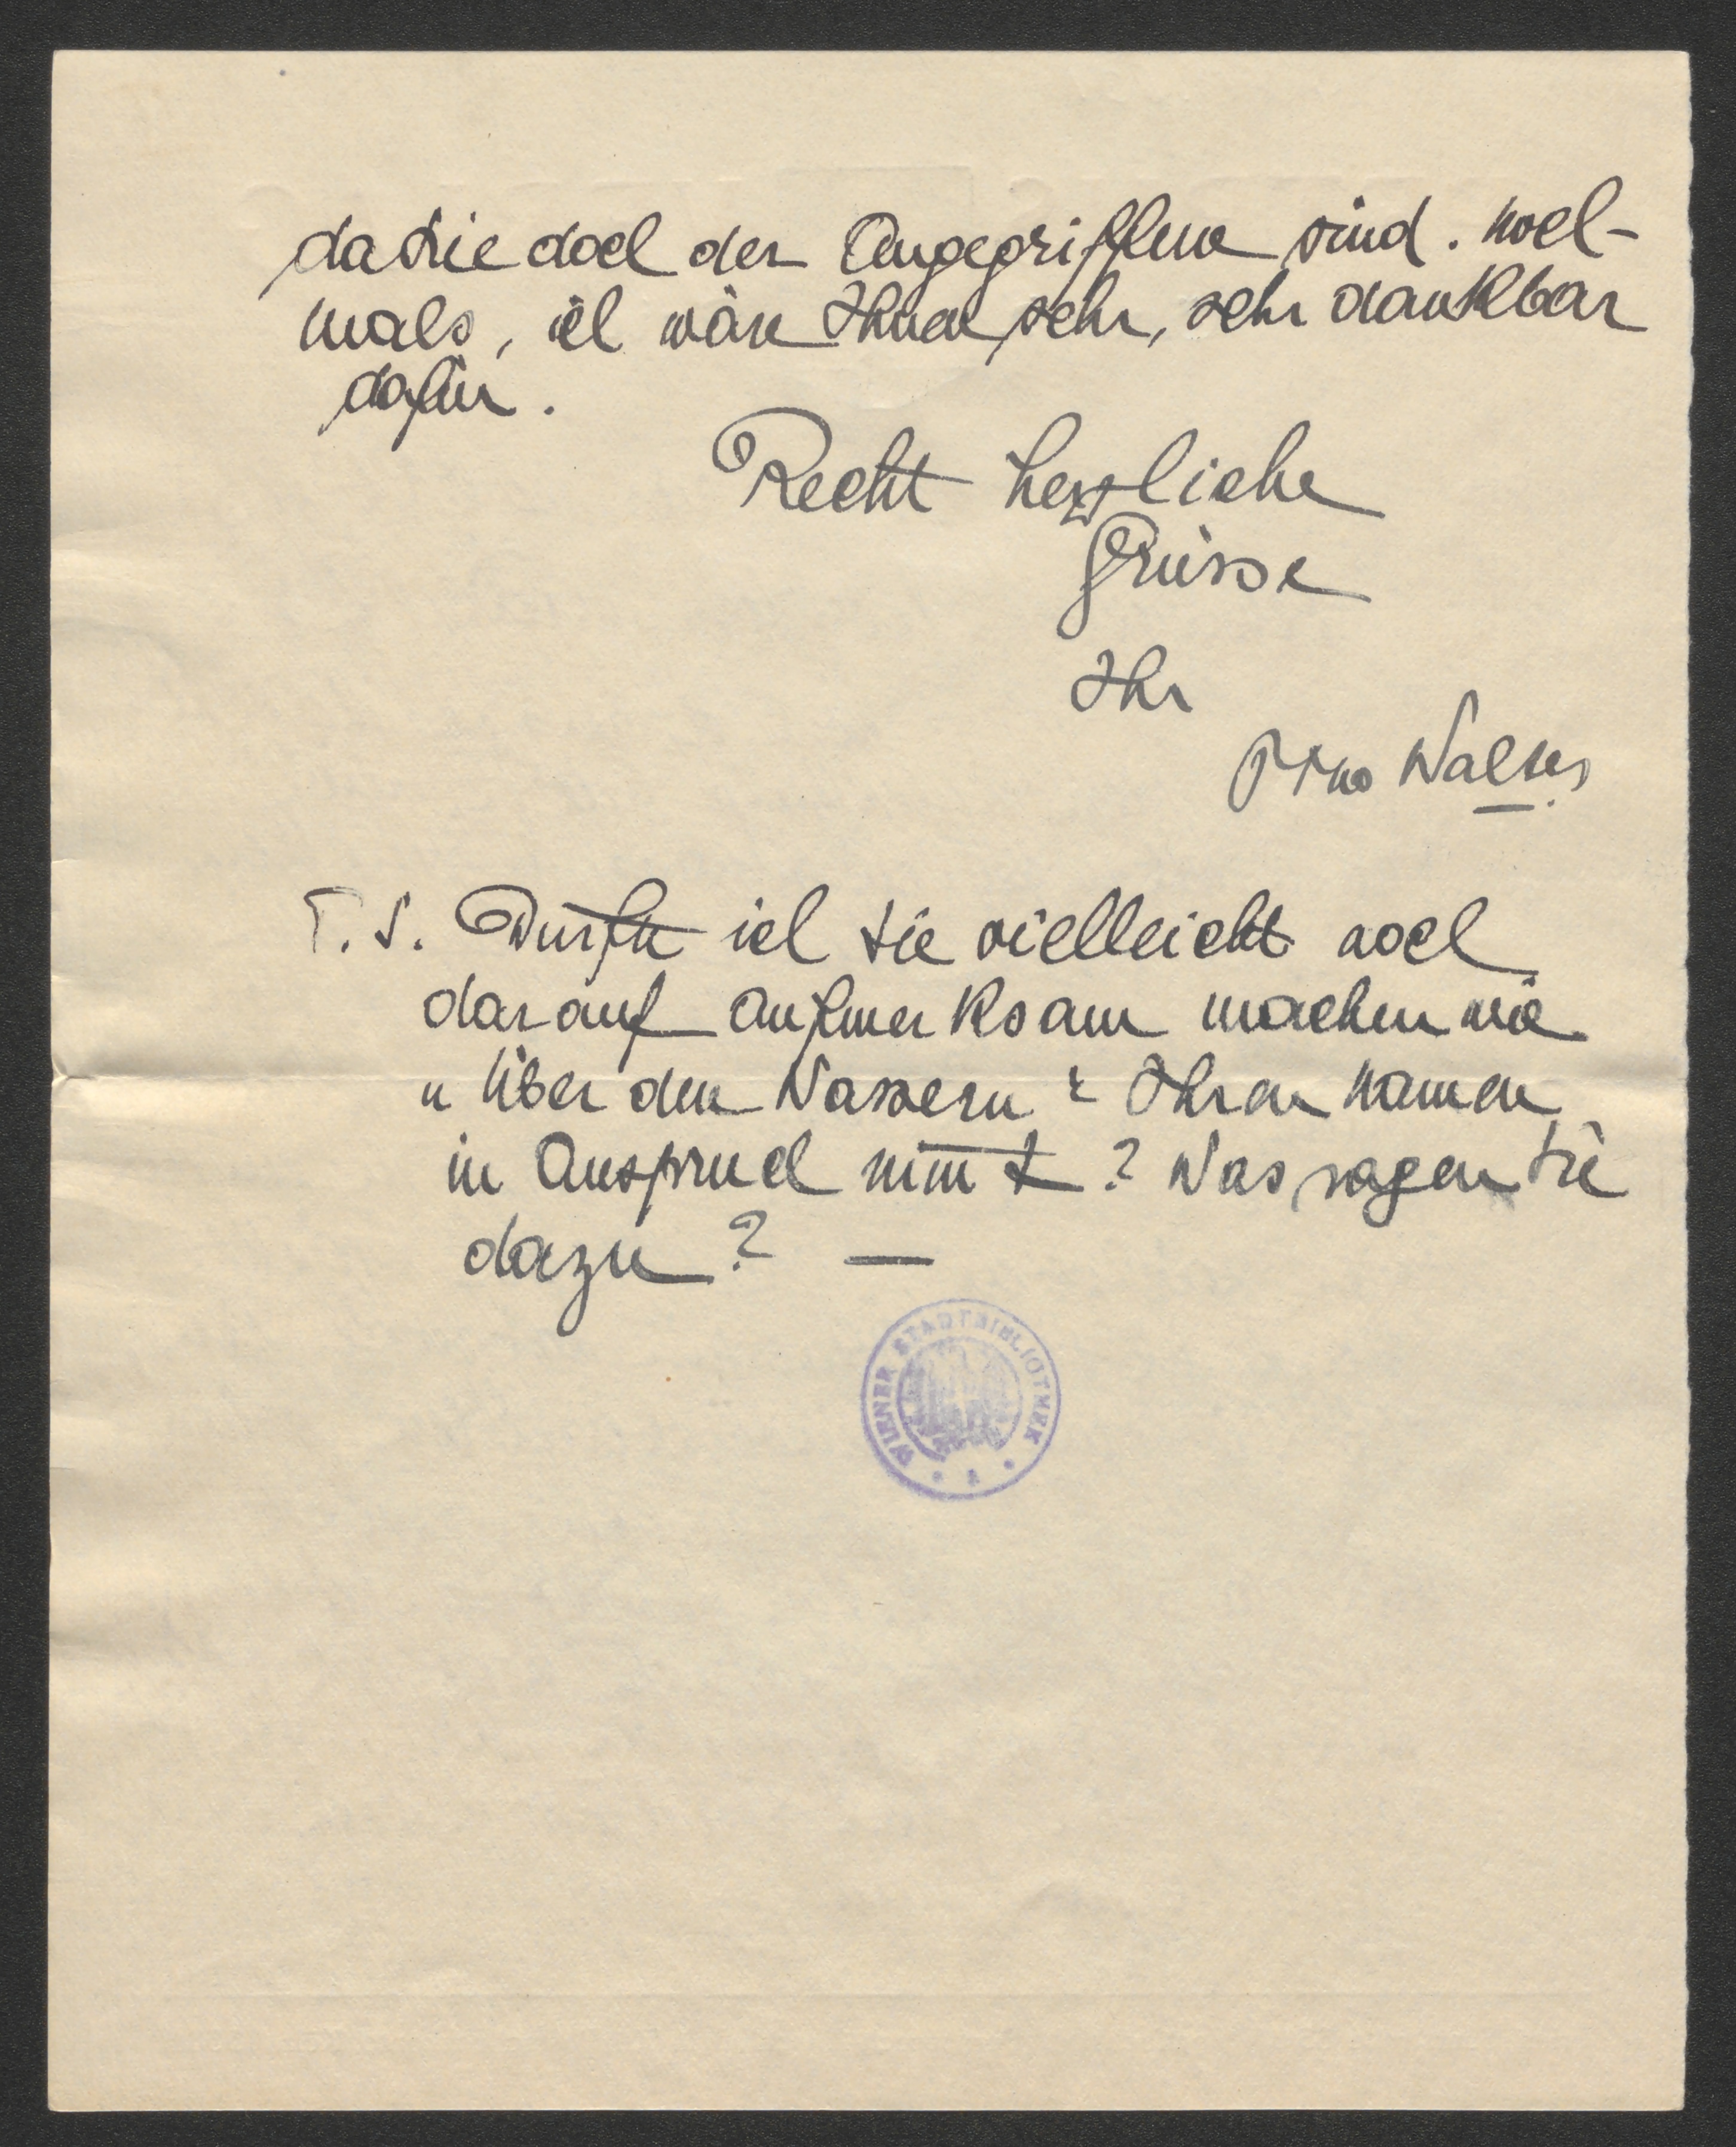 da Sie doch der Angegriffene sind. Noch-
mals, ich wäre Ihnen sehr, sehr dankbar
dafür.
Recht herzliche
Grüsse
Ihr
Otto Walter
P.S. Dürfte ich Sie vielleicht noch
darauf aufmerksam machen wie
„Über den Wassern“ Ihren Namen
in Anspruch nim̅t? Was sagen Sie
dazu? —
WIENER STADTBIBLIOTHEK